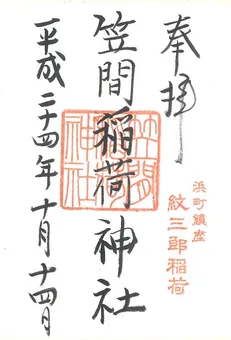 奉拝
浜町鎮座
紋三郎稲荷
笠間稲荷神社
笠間
神社
平成二十四年十月十四日